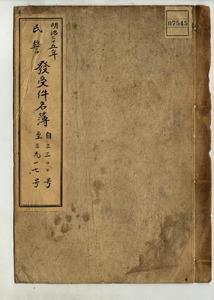 明治三十五年
民籍
發受件名簿
自三三〇〇号
至三九一七号
07545